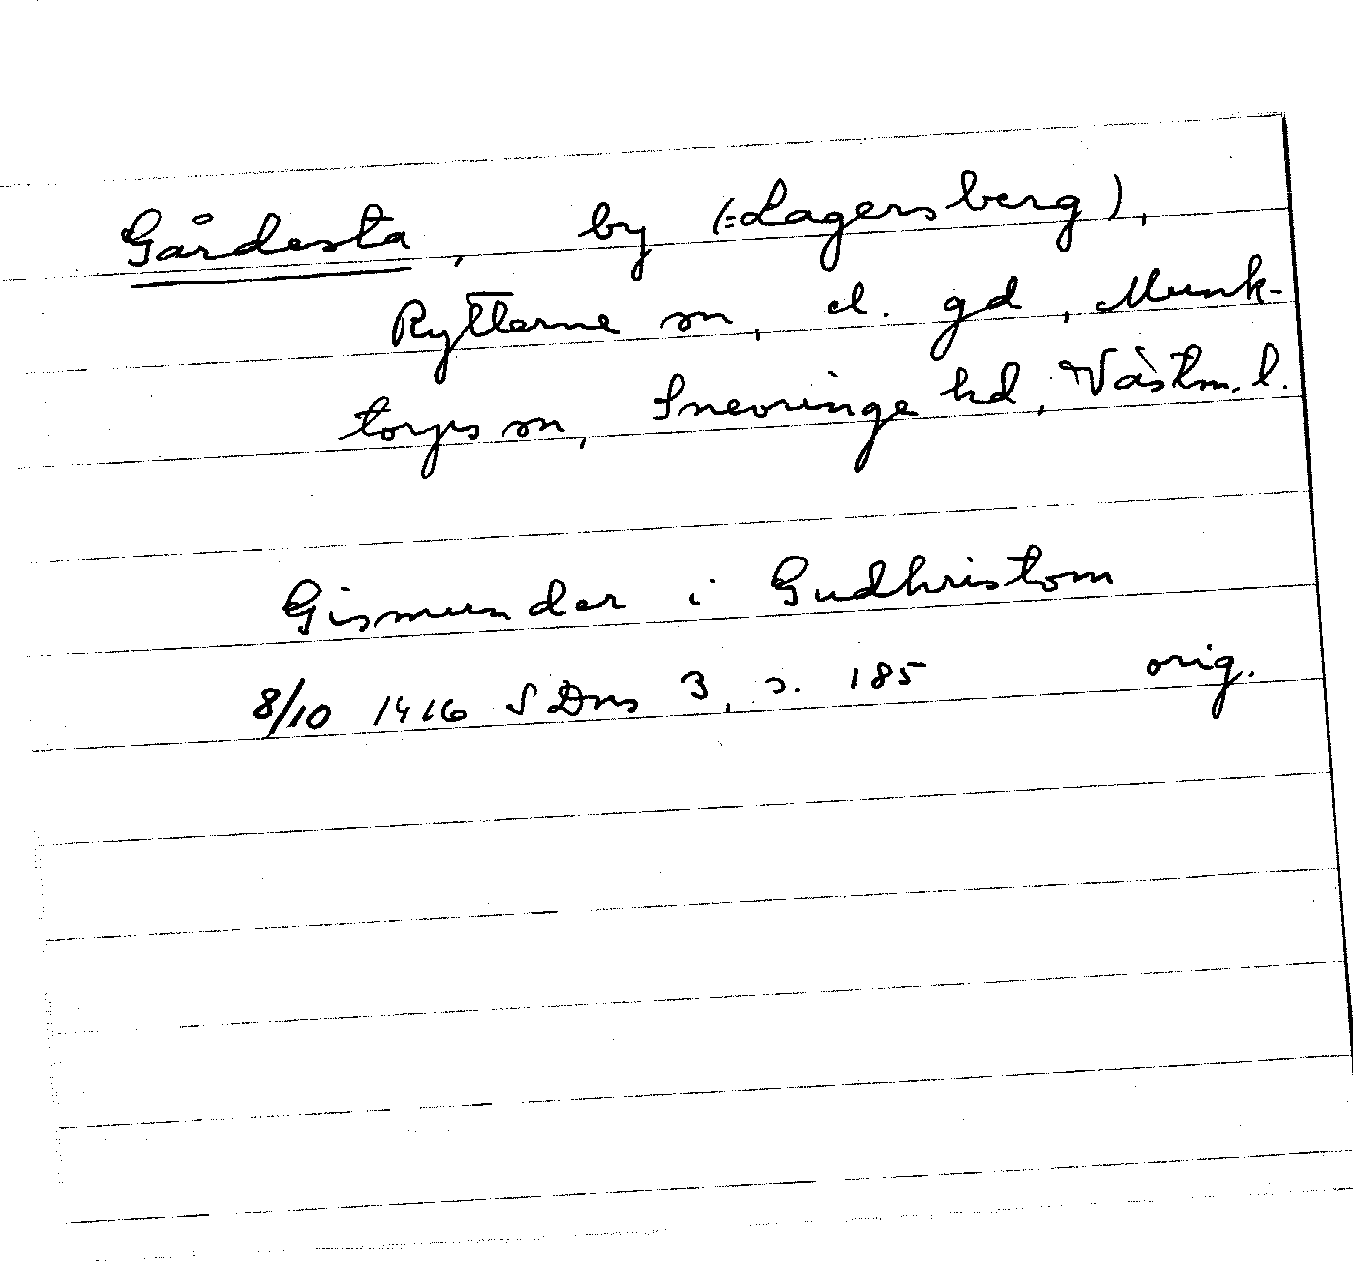 Gårdesta, by (=Lagersberg),
Rytterne sn, el. gd, Munk-
torps sn, Snevringe hd, Västm. l.
Gismunder i Gudhristom
8/10 1416 SDns 3, s. 185 orig.